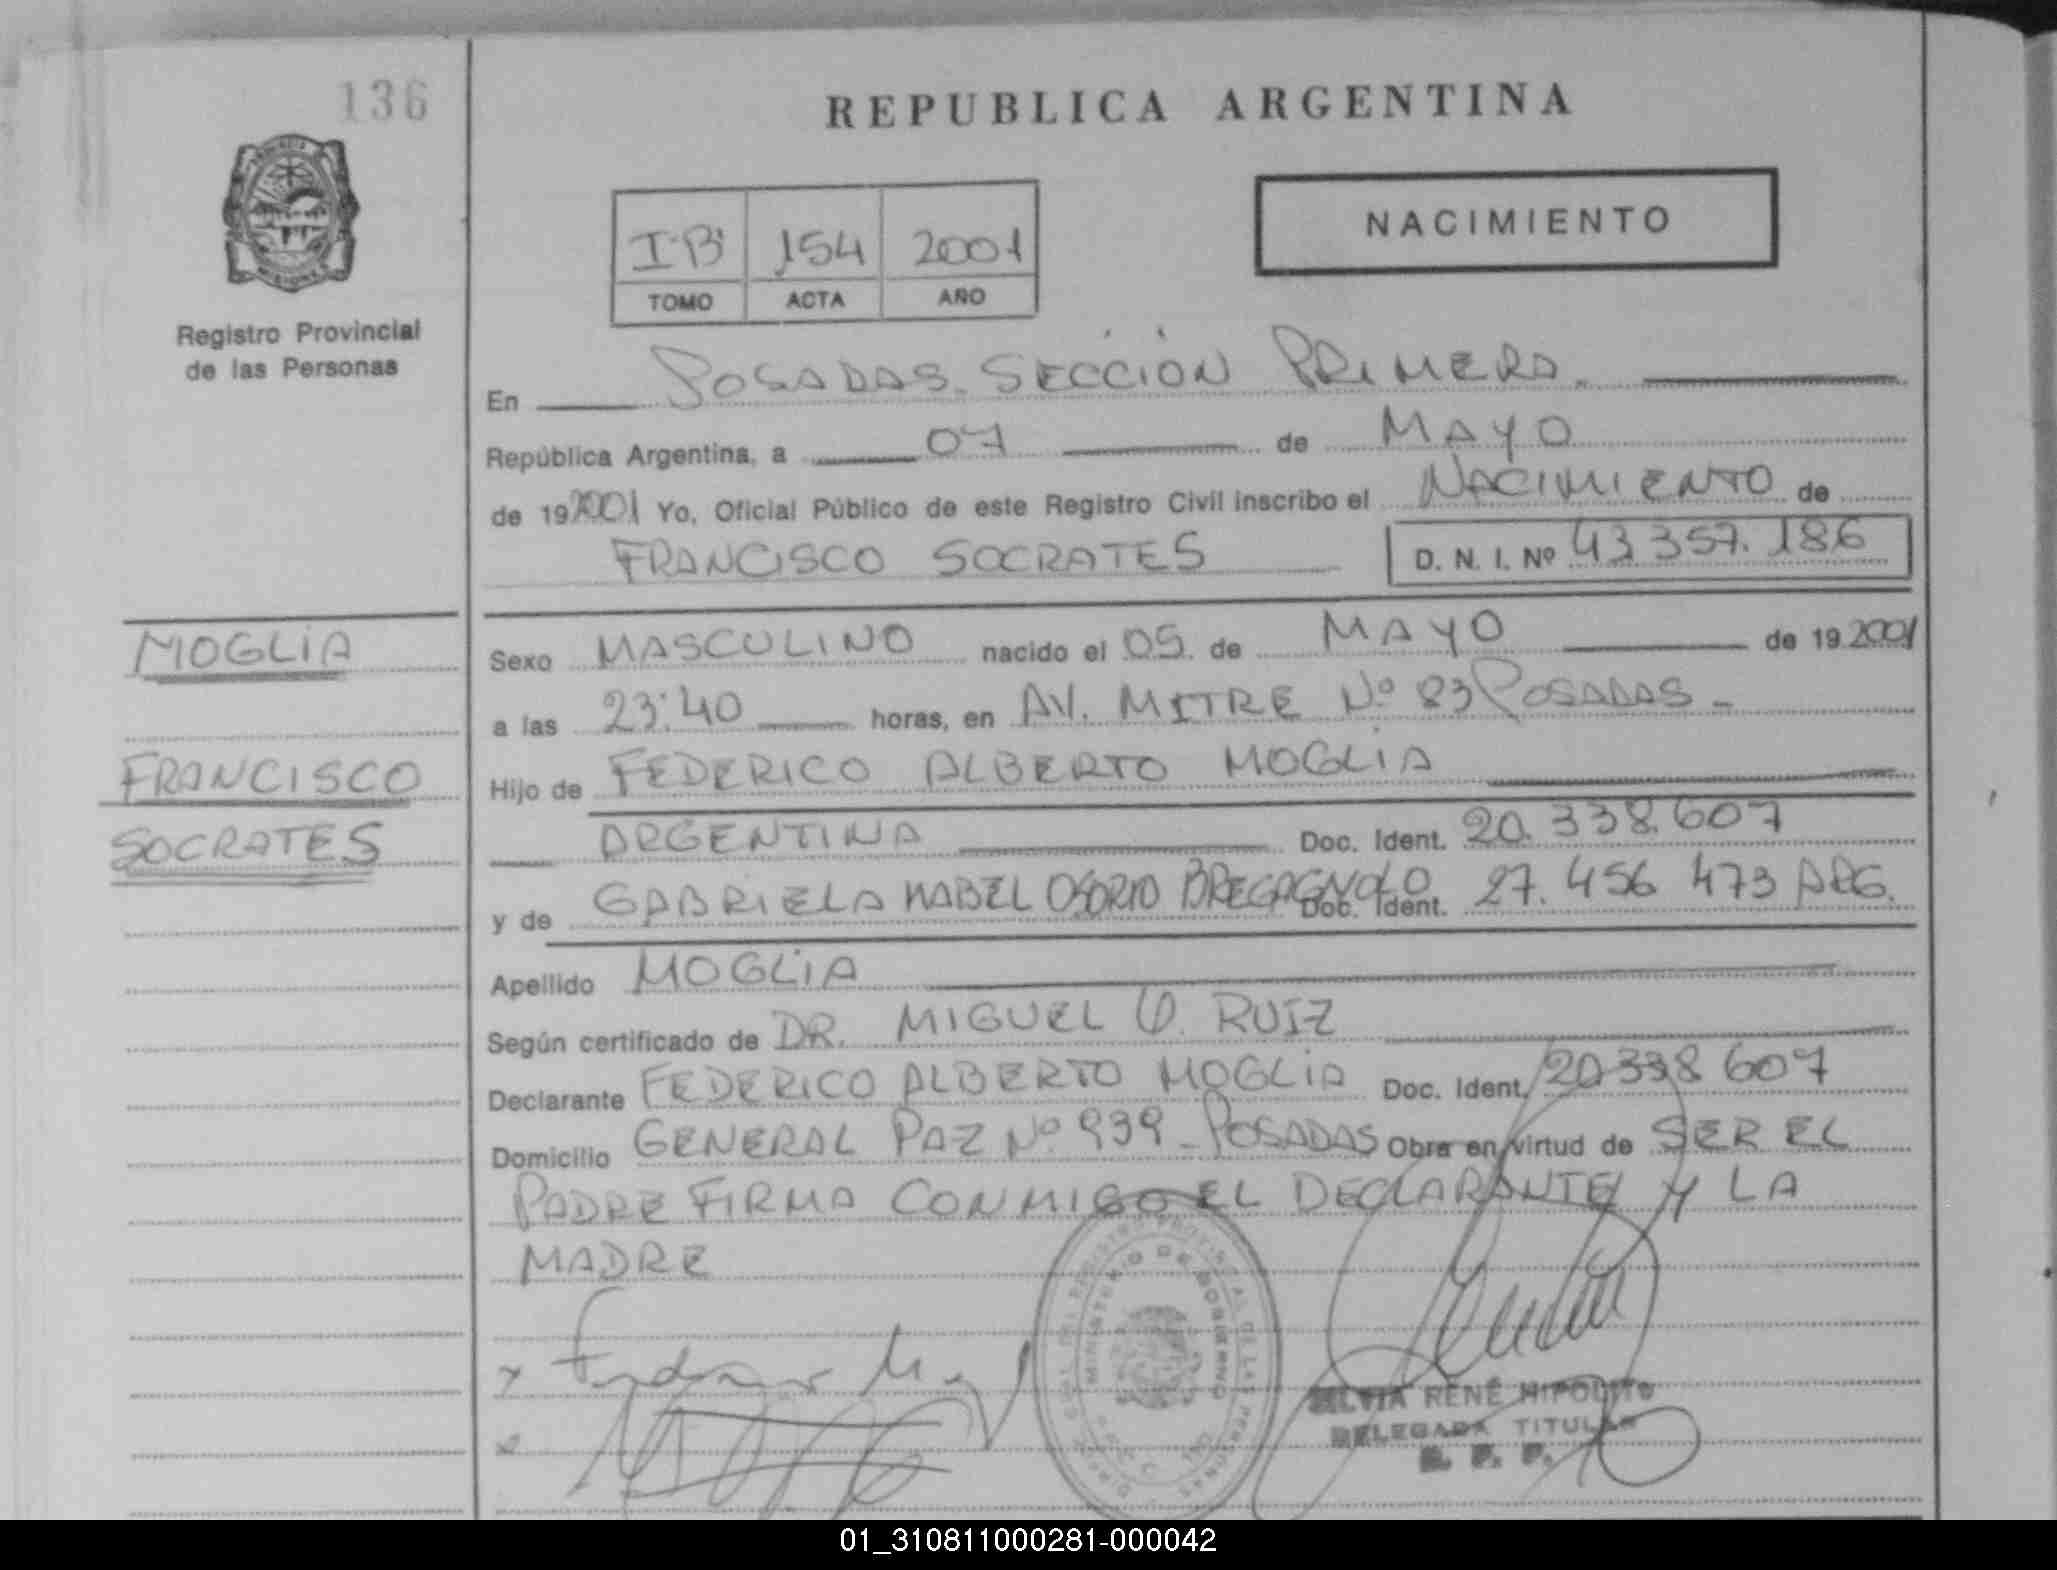 136
REPUBLICA ARGENTINA
NACIMIENTO
I-B 154 2001
TOMO ACTA AÑO
Registro Provincial
de las Personas
En POSADAS. SECCIÓN PRIMERA.
República Argentina, a 07 de MAYO
de 192001 Yo, Oficial Público de este Registro Civil inscribo el NACIMIENTO de
FRANCISCO SOCRATES D. N. I. Nº 43357.186
MOGLIA
FRANCISCO
SOCRATES
Sexo MASCULINO nacido el 05. de MAYO de 19.2001
a las 23:40 horas, en AV. MITRE Nº 83 POSADAS -
Hijo de FEDERICO ALBERTO MOGLIA
ARGENTINA Doc. Ident. 20.338.607
y de GABRIELA MABEL OSORIO BREGAGNOLO Doc. Ident. 27.456 473 ARG.
Apellido MOGLIA
Según certificado de DR. MIGUEL O. RUIZ
Declarante FEDERICO ALBERTO MOGLIA Doc. Ident. 20338607
Domicilio GENERAL PAZ Nº 939 - POSADAS Obra en virtud de SER EL
PADRE FIRMA CONMIGO EL DECLARANTE Y LA
MADRE
MINISTERIO DE GOBIERNO
SILVIA RENÉ HIPOLITO
DELEGADA TITULAR
01_310811000281-000042